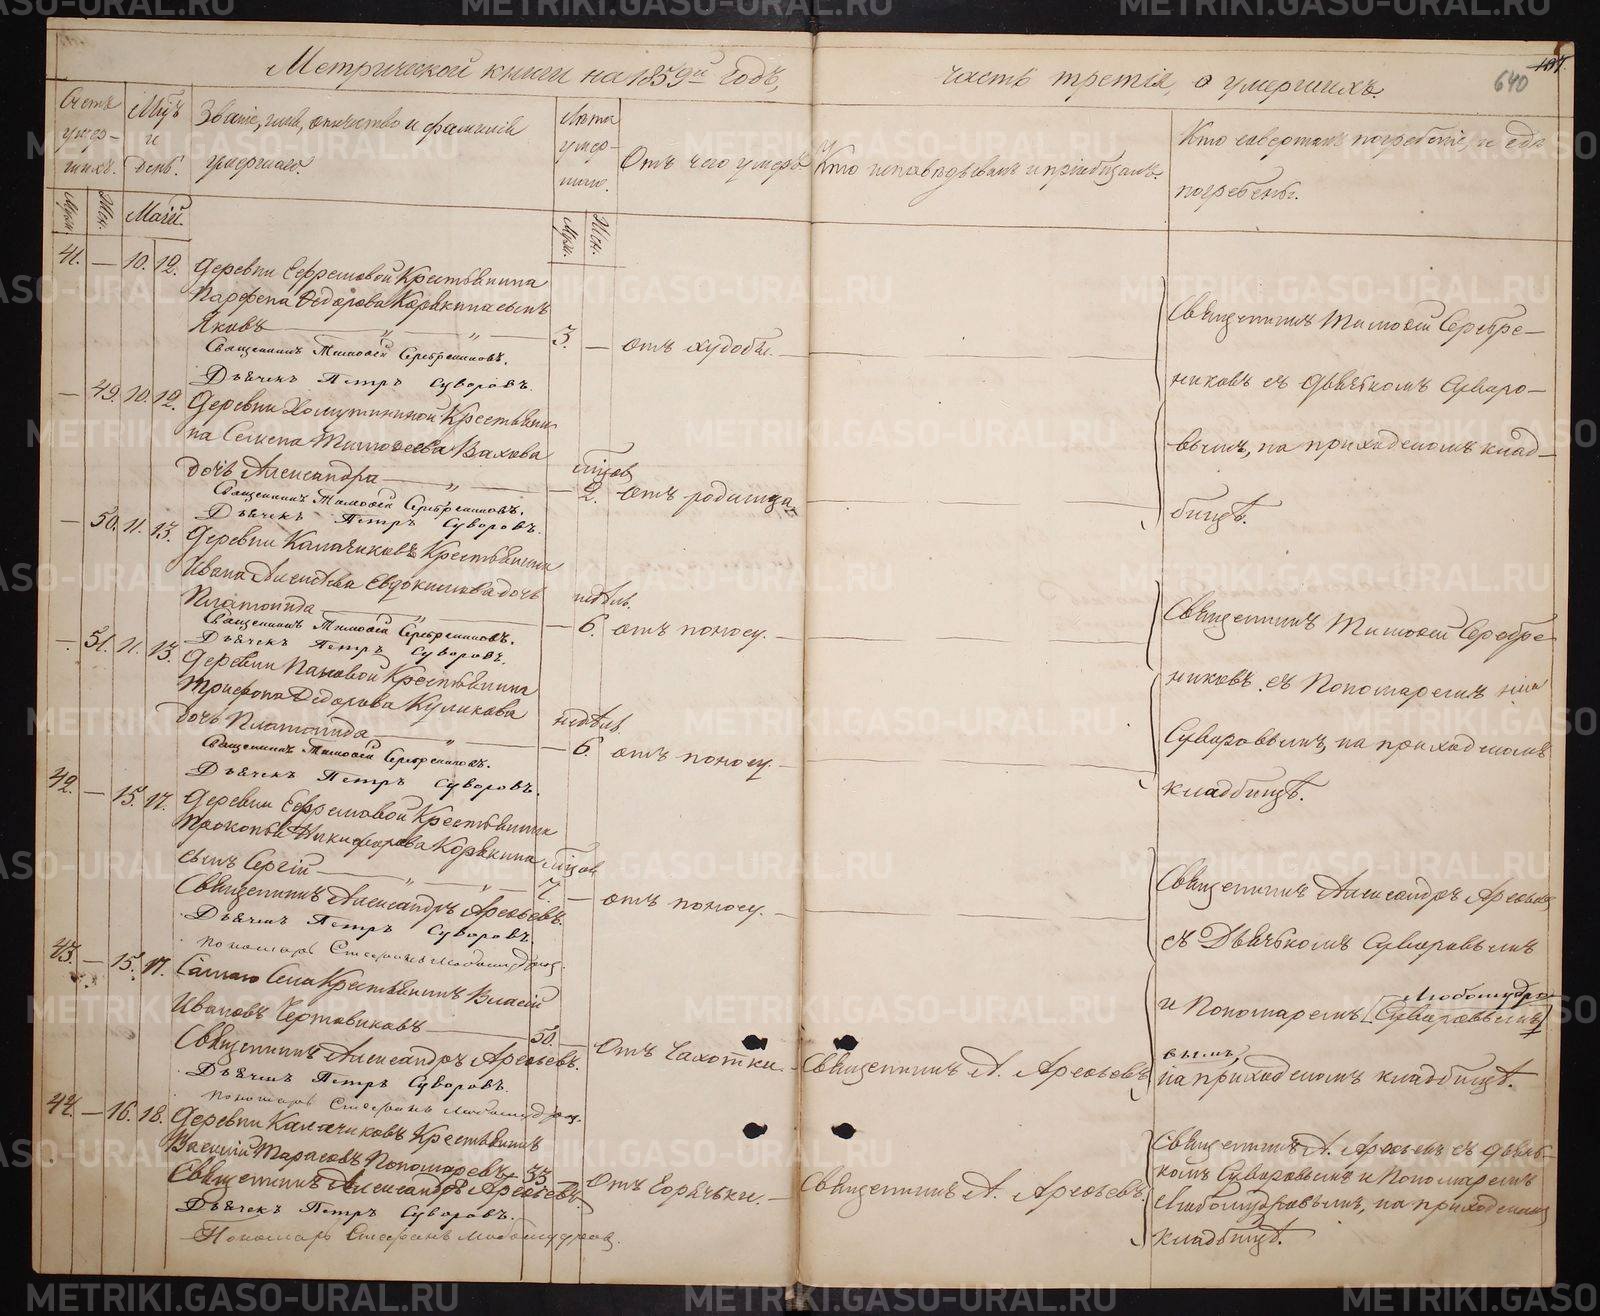 Метрической книги на 1859й годъ,
часть третія, о умершихъ.
640
Счетъ умер-шихъ.
Мцъ и день.
Званіе, имя, отчество и фамилія умершаго.
Лѣта умер-шаго.
Отъ чего умеръ.
Кто исповѣдывалъ и пріобщалъ.
Кто совершалъ погребеніе, и гдѣ
погребены.
Муж. Жен. Маій.
Муж. Жен.
41. — 10. 12. Деревни Ефремовой Крестьянина
Парфена Ѳедорова Корякина сынъ
Яковъ 3. — отъ худобы.
Священникъ Тимоѳей Серебренниковъ.
Дьячекъ Петръ Суворовъ.
Священникъ Тимоѳей Серебре-
никовъ съ дьячкомъ Суворо-
вымъ, на приходскомъ клад-
бищѣ.
— 49. 10. 12. Деревни Хомутининой Крестьяни-
на Семена Тимоѳеева Вахова
дочь Александра — мѣсяцов 2. отъ родимца
Священникъ Тимоѳей Серебренниковъ.
Дьячекъ Петръ Суворовъ.
— 50. 11. 13. Деревни Калачиковъ Крестьянина
Ивана Алексѣева Евдокимова дочь
Платонида — недѣль. 6. отъ поносу.
Священникъ Тимоѳей Серебренниковъ.
Дьячекъ Петръ Суворовъ.
Священникъ Тимоѳей Серебре
никовъ съ Пономаремъ
Суворовымъ, на приходскомъ
кладбищѣ.
— 51. 11. 13. Деревни Пановой Крестьянина
Трифона Ѳедорова Куликова
дочь Платонида — недѣль 6 отъ поносу.
Священникъ Тимоѳей Серебренниковъ.
Дьячекъ Петръ Суворовъ.
42. — 15. 17. Деревни Ефремовой Крестьянина
Прокопья Никифорова Корякина
сынъ Сергій — мѣсяцов 7. — отъ поносу.
Священникъ Александръ Арефьевъ.
Дьячекъ Петръ Суворовъ.
Пономарь Стефанъ Любомудровъ.
Священникъ Александръ Арефьевъ
съ Дьячкомъ Суворовымъ
и Пономаремъ [Суворовымъ] Любомудро
вымъ,
на приходскомъ кладбищѣ.
43. — 15. 17. Самаго Села Крестьянинъ Власій
Ивановъ Чертовиковъ — 50. — Отъ Чахотки. Священникъ А. Арефьевъ
Священникъ Александръ Арефьевъ.
Дьячекъ Петръ Суворовъ.
Пономарь Стефанъ Любомудровъ.
44. — 16. 18. Деревни Калачиковъ Крестьянинъ
Василій Тарасовъ Пономаревъ 33. Отъ Горячьки. — Священникъ А. Арефьевъ.
Священникъ Александръ Арефьевъ.
Дьячекъ Петръ Суворовъ.
Пономарь Стефанъ Любомудровъ.
Священникъ А. Арефьевъ съ дьяч-
комъ Суворовымъ и Пономаремъ
Любомудровымъ, на приходскомъ
кладбищѣ.
METRIKI.GASO-URAL.RU